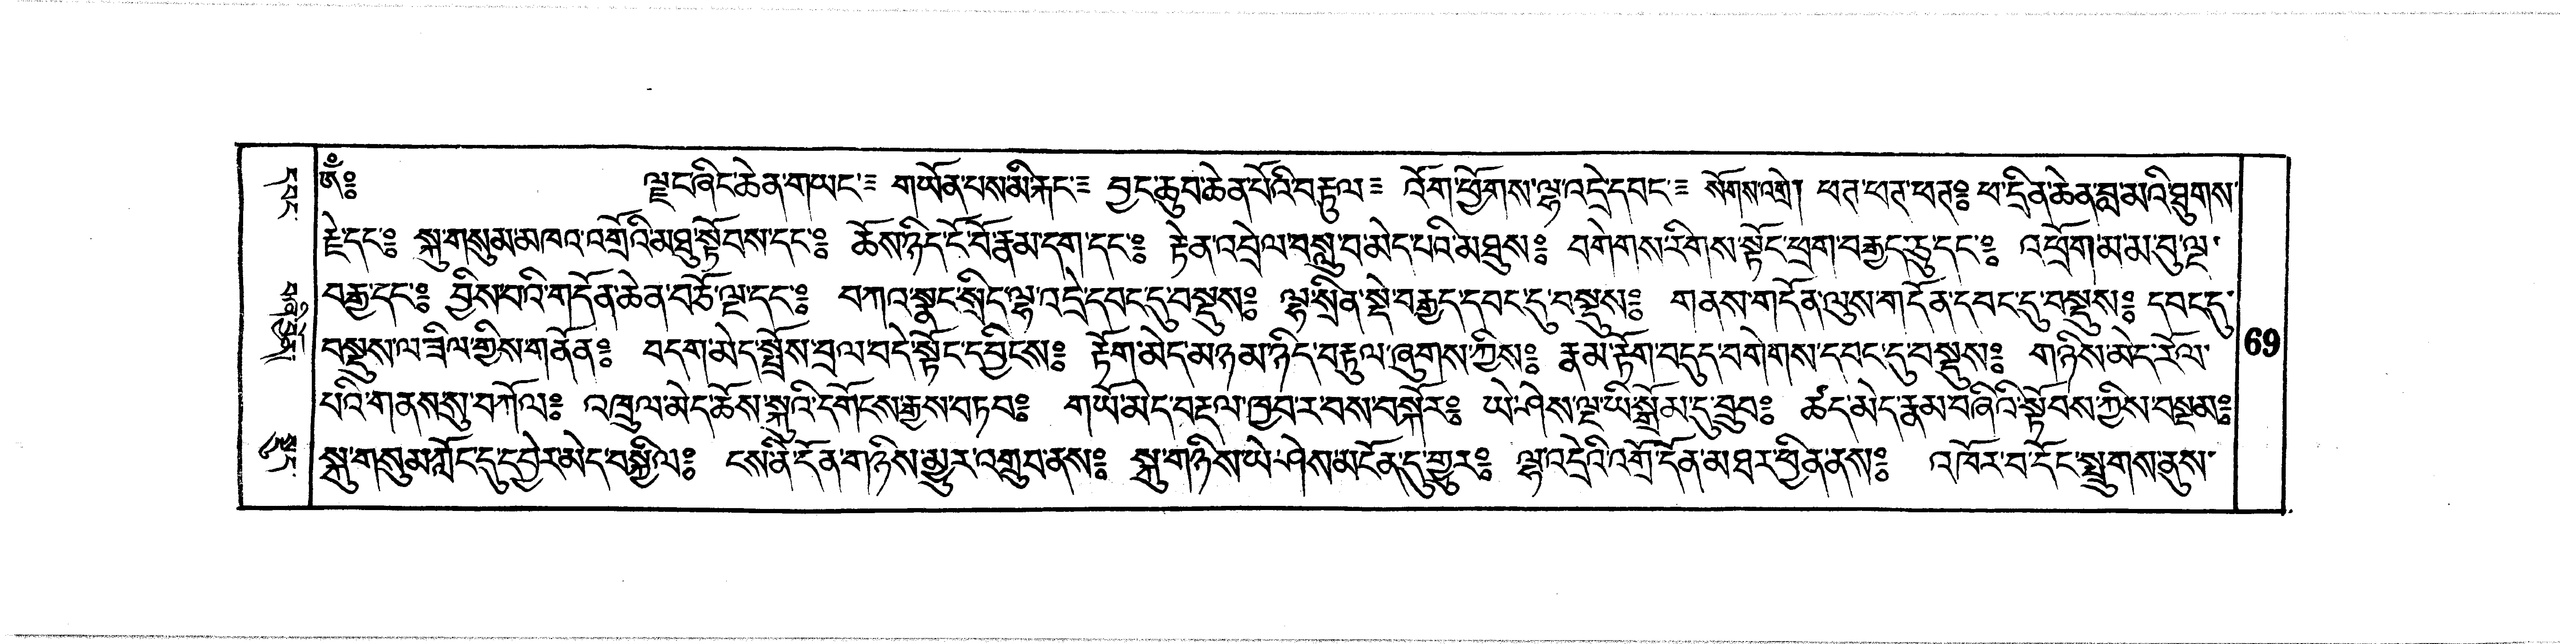 ཨོཾ༔ ལྔ་ང་ཞིང་ཆེན་གཡང་༔ གཡོན་པས་མི་རྐང་༔ བྱང་ཆུབ་ཆེན་པོའི་བརྟུལ༔ འོག་ཕྱོགས་ལྷ་འདྲེ་དབང་༔ སོགས་འགྲེ། ཕཊ་ཕཊ་ཕཊ༔ ཕ་དྲིན་ཆེན་བླ་མའི་ཐུགས་
རྗེ་དང་༔ སྐུ་གསུམ་མཁའ་འགྲོའི་མཐུ་སྟོབས་དང་༔ ཆོས་ཉིད་ངོ་བོ་རྣམ་དག་དང་༔ རྟེན་འབྲེལ་བསླུ་བ་མེད་པའི་མཐུས༔ བགེགས་རིགས་སྟོང་ཕྲག་བརྒྱད་ཅུ་དང་༔ འཕྲོག་མ་མ་བུ་ལྔ་
བརྒྱ་དང་༔ བྱིས་པའི་གདོན་ཆེན་བཅོ་ལྔ་དང་༔ བཀའ་སྣང་སྲིད་ལྷ་འདྲེ་དབང་དུ་བསྡུས༔ ལྷ་སྲིན་སྡེ་བརྒྱད་དབང་དུ་བསྡུས༔ གནས་གདོན་ལུས་གདོན་དབང་དུ་བསྡུས༔ དབང་དུ་
བསྡུས་ལ་ཟིལ་གྱིས་གནོན༔ བདག་མེད་སྤྲོས་བྲལ་བདེ་སྟོང་དབྱིངས༔ རྟོག་མེད་མཉམ་ཉིད་བརྟུལ་ཞུགས་ཀྱིས༔ རྣམ་རྟོག་བདུད་བགེགས་དབང་དུ་བསྡུས༔ གཉིས་མེད་རོལ་
པའི་གནས་སུ་བཀོལ༔ འཁྲུལ་མེད་ཆོས་སྐུའི་དགོངས་རྒྱས་བཏབ༔ གཡོ་མེད་བརྡལ་ཁྱབ་ར་བས་བསྐོར༔ ཡེ་ཤེས་ལྔ་ཡི་སྒྲོམ་དུ་བྲུབ༔ ཚད་མེད་རྣམ་བཞིའི་སྟོབས་ཀྱིས་བསྡམ༔
སྐུ་གསུམ་ཀློང་དུ་དབྱེར་མེད་བསྐྱིལ༔ ངས་ནི་དོན་གཉིས་མྱུར་འགྲུབ་ནས༔ སྐུ་གཉིས་ཡེ་ཤེས་མངོན་དུ་གྱུར༔ ལྷ་འདྲེའི་འགྲོ་དོན་མཐར་ཕྱིན་ནས༔ འཁོར་བ་དོང་སྤྲུགས་ནུས་
69